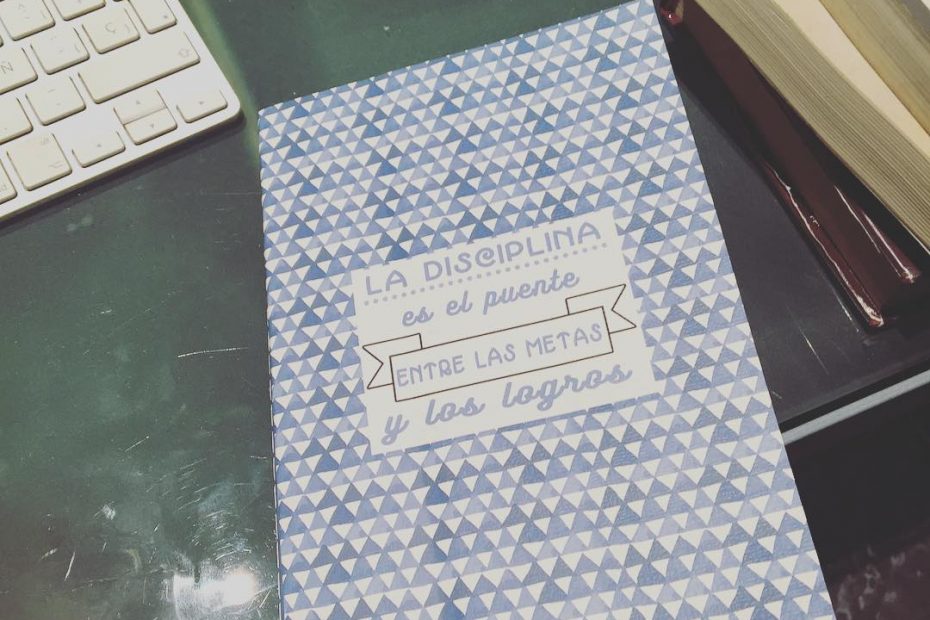 LA DISCIPLINA
es el puente
ENTRE LAS METAS
y los logros
Ñ
Ç